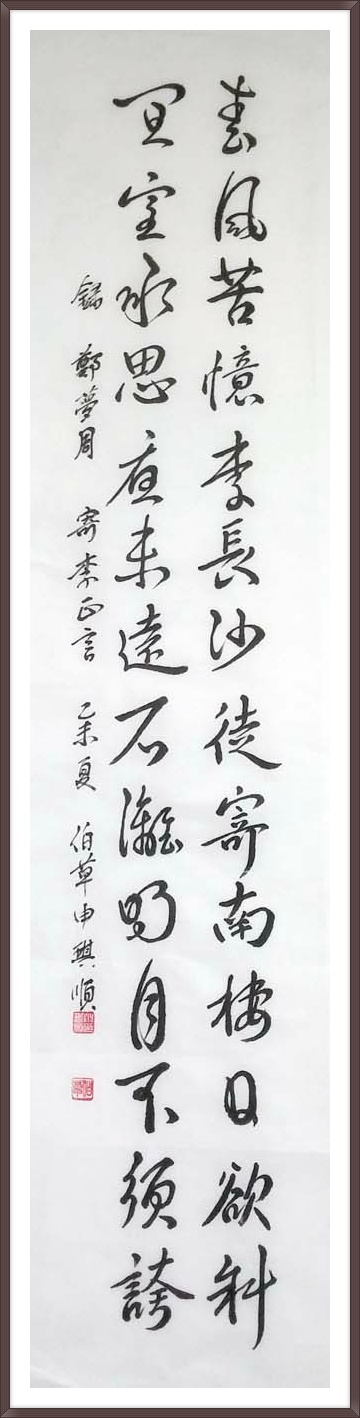 春風苦憶李長沙徙寄南樓日欲斜
宣室承恩應未遠石灘明月不須誇
錄 鄭夢周 寄李正言 乙未夏 伯草申琪順